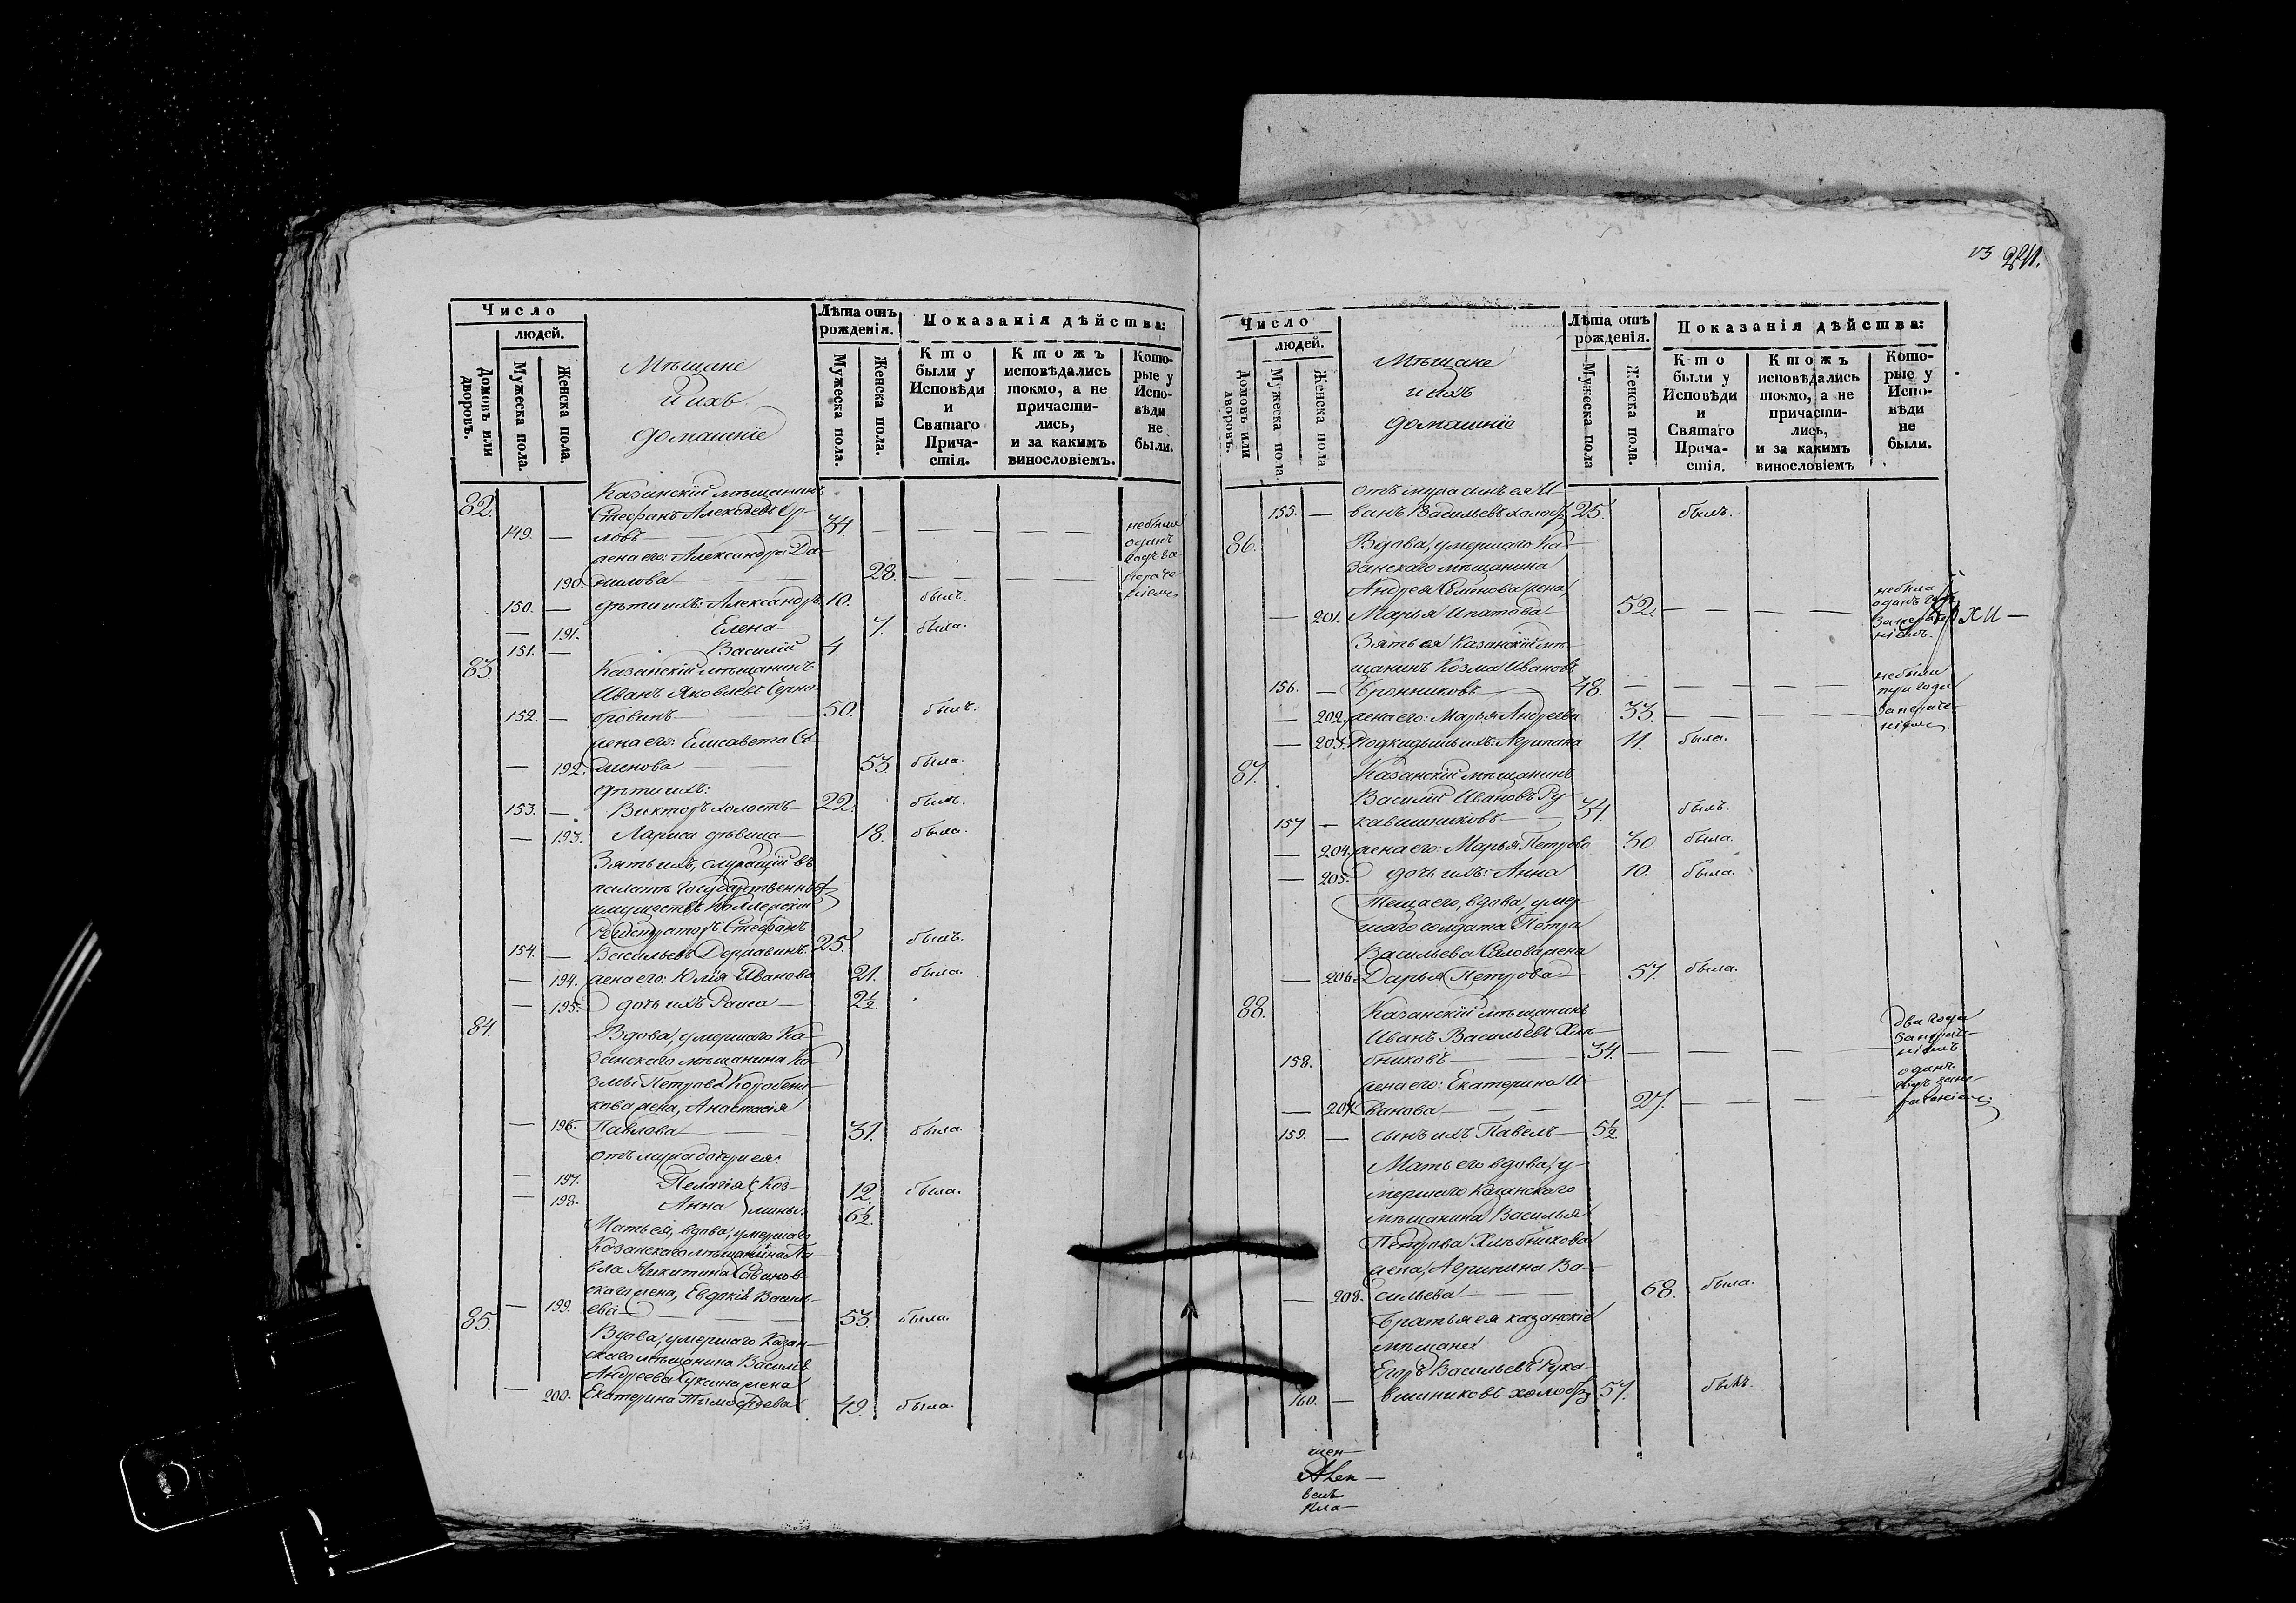 Число
людей.
Домовъ или дворовъ.
Мужеска пола.
Женска пола.
Мѣщане
и ихъ
домашніе
Лѣта отъ рожденія.
Мужеска пола.
Женска пола.
Показанія дѣйства:
Кто были у Исповѣди и Святаго Причастія.
Ктожъ исповѣдались токмо, а не причастились, и за какимъ винословіемъ.
Которые у Исповѣди не были.
82.
Казанскій мѣщанинъ
Стефанъ Алексѣевъ Ор-
149. — ловъ — 34. — — — —
жена его: Александра Да-
190. нилова — 28. — — — —
небыли одинъ годъ за
150. — дѣти ихъ: Александръ 10. былъ.
— 191. Елена — 7. была.
151. — Василій 4.
83.
Казанскій мѣщанинъ
Иванъ Яковлевъ Черно-
152. — бровинъ — 50. былъ.
жена его: Елисавета Се-
— 192. менова — 53. была.
дѣти ихъ:
153. — Викторъ холостъ — 22. былъ.
— 193. Лариса дѣвица — 18. была.
Зять ихъ, служащій въ
палатѣ государственныхъ
имуществъ Коллежскій
Регистраторъ Стефанъ
154. — Васильевъ Державинъ. 25. былъ.
— 194. жена его: Юлія Иванова 21. была.
— 195. дочь ихъ Раиса — 2½.
84.
Вдова, умершаго Ка-
занскаго мѣщанина Ко-
змы Петрова Коробени-
кова жена, Анастасія
— 196. Павлова — 31. была.
отъ мужа дочери ея:
— 197. Пелагія Коз- 12. была.
— 198. Анна мины: 6½.
Мать ея, вдова, умершаго
Казанскаго мѣщанина Па-
вла Никитина Савинов-
скаго жена, Евдокія Василь-
— 199. ева — 53. была.
85.
Вдова, умершаго Казан-
скаго мѣщанина Василья
Андреева жена
— 200. Екатерина Тимофѣева 49. была.
13 241.
Число
людей.
Домовъ или дворовъ.
Мужеска пола
Женска пола
Мѣщане
и ихъ
домашніе
Лѣта отъ рожденія.
Мужеска пола
Женска пола.
Показанія дѣйства:
Кто были у Исповѣди и Святаго Причастія.
Ктожъ исповѣдались токмо, а не причастились, и за какимъ винословіемъ
Которые у Исповѣди не были.
отъ мужа сынъ ея И-
155. — ванъ Васильевъ холос. 25. былъ.
86.
Вдова, умершаго Ка-
занскаго мѣщанина
Андрея Семенова жена
— 201. Марья Ипатова — 52. — — — —
небыла одинъ годъ
Зять ея Казанскій мѣ-
щанинъ Козма Ивановъ
156. — Бронниковъ — 48. — — — —
— 202. жена его: Марья Андреева 33. — — — —
небыли три года
— 203. Подкидышъ ихъ: Агрипина 11. была.
87.
Казанскій мѣщанинъ
Василій Ивановъ Ру-
157 — кавишниковъ — 34. былъ.
— 204. жена его: Марья Петрова 30. была.
— 205. дочь ихъ: Анна 10. была.
Теща его, вдова, умер-
шаго солдата Петра
Васильева жена
— 206. Дарья Петрова — 57. была.
88.
Казанскій мѣщанинъ
Иванъ Васильевъ Хлѣ-
158. бниковъ — 34. — — — —
два года
жена его: Екатерина И-
— 207. ванова — 27. — — — —
одинъ годъ
159. — сынъ ихъ Павелъ — 5½
Мать его вдова, у-
мершаго Казанскаго
мѣщанина Василья
Петрова Хлѣбникова
жена, Агрипина Ва-
— 208. сильева — 68. была.
Братья ея казанскіе
мѣщане:
Егоръ Васильевъ Рука-
160. — вишниковъ 57. былъ.